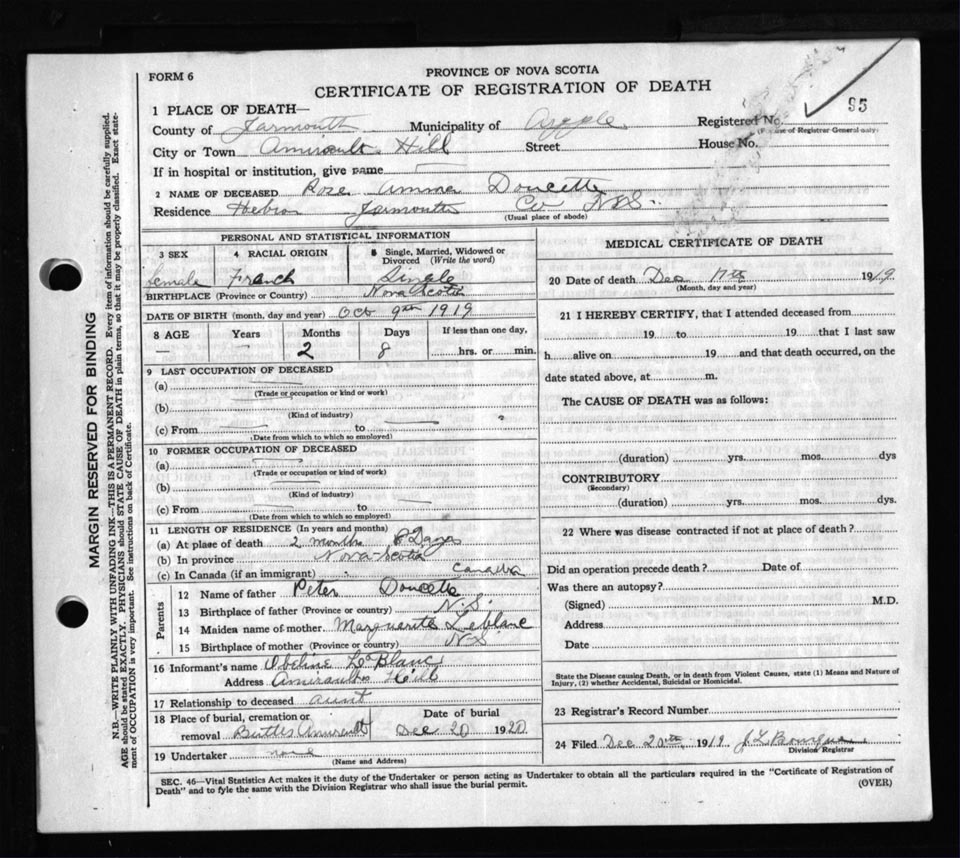 FORM 6
PROVINCE OF NOVA SCOTIA
CERTIFICATE OF REGISTRATION OF DEATH
95
1 PLACE OF DEATH—
Registered No.
(For use of Registrar General only)
County of Yarmouth Municipality of Argyle
City or Town Amiraults Hill Street House No.
If in hospital or institution, give name
2 NAME OF DECEASED Rose Anna Doucette
Residence Hebron Yarmouth Co N.S.
(Usual place of abode)
PERSONAL AND STATISTICAL INFORMATION
3 SEX 4 RACIAL ORIGIN 5 Single, Married, Widowed or Divorced (Write the word)
female French Single
BIRTHPLACE (Province or Country) Nova Scotia
DATE OF BIRTH (month, day and year) Oct 9th 1919
8 AGE Years Months Days If less than one day,
— 2 8 hrs. or min.
9 LAST OCCUPATION OF DECEASED
(a)
(Trade or occupation or kind or work)
(b)
(Kind of industry)
(c) From to
(Date from which to which so employed)
10 FORMER OCCUPATION OF DECEASED
(a)
(Trade or occupation or kind of work)
(b)
(Kind of industry)
(c) From to
(Date from which to which so employed)
11 LENGTH OF RESIDENCE (In years and months)
(a) At place of death 2 months 8 Days
(b) In province Nova-Scotia
(c) In Canada (if an immigrant) Canada
Parents
12 Name of father Peter Doucette
13 Birthplace of father (Province or country) N.S.
14 Maiden name of mother Marguerite Leblanc
15 Birthplace of mother (Province or country) N.S
16 Informant's name Obeline LeBlanc
Address Amiraults Hill
17 Relationship to deceased aunt
18 Place of burial, cremation or removal Date of burial
Amirault Dec 20 1920
19 Undertaker none
(Name and Address)
MEDICAL CERTIFICATE OF DEATH
20 Date of death Dec 17th 1919
(Month, day and year)
21 I HEREBY CERTIFY, that I attended deceased from
19 to 19 that I last saw
h alive on 19 and that death occurred, on the
date stated above, at m.
The CAUSE OF DEATH was as follows:
(duration) yrs. mos. dys
CONTRIBUTORY
(Secondary)
(duration) yrs. mos. dys.
22 Where was disease contracted if not at place of death?
Did an operation precede death? Date of
Was there an autopsy?
(Signed) M.D.
Address
Date
State the Disease causing Death, or in death from Violent Causes, state (1) Means and Nature of
Injury, (2) whether Accidental, Suicidal or Homicidal.
23 Registrar's Record Number
24 Filed Dec 20th 1919 J L Bourque
Division Registrar
SEC. 46—Vital Statistics Act makes it the duty of the Undertaker or person acting as Undertaker to obtain all the particulars required in the "Certificate of Registration of
Death" and to fyle the same with the Division Registrar who shall issue the burial permit.
(OVER)
MARGIN RESERVED FOR BINDING
N.B.—WRITE PLAINLY WITH UNFADING INK—THIS IS A PERMANENT RECORD. Every item of information should be carefully supplied.
AGE should be stated EXACTLY. PHYSICIANS should STATE CAUSE OF DEATH in plain terms, so that it may be properly classified. Exact state-
ment of OCCUPATION is very important. See instructions on back of Certificate.